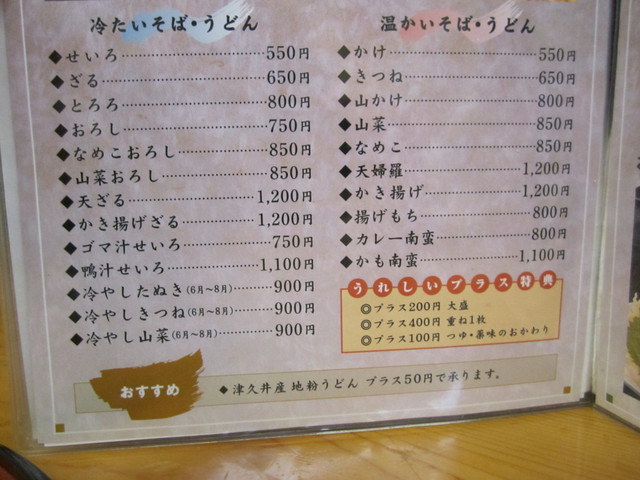 冷たいそば・うどん
◆せいろ……550円
◆ざる……650円
◆とろろ……800円
◆おろし……750円
◆なめこおろし……850円
◆山菜おろし……850円
◆天ざる……1,200円
◆かき揚げざる……1,200円
◆ゴマ汁せいろ……750円
◆鴨汁せいろ……1,100円
◆冷やしたぬき(6月〜8月)……900円
◆冷やしきつね(6月〜8月)……900円
◆冷やし山菜(6月〜8月)……900円
温かいそば・うどん
◆かけ……550円
◆きつね……650円
◆山かけ……800円
◆山菜……850円
◆なめこ……850円
◆天婦羅……1,200円
◆かき揚げ……1,200円
◆揚げもち……800円
◆カレー南蛮……800円
◆かも南蛮……1,100円
うれしいプラス特典
◎プラス200円 大盛
◎プラス400円 重ね1枚
◎プラス100円 つゆ・薬味のおかわり
おすすめ
◆津久井産 地粉うどん プラス50円で承ります。